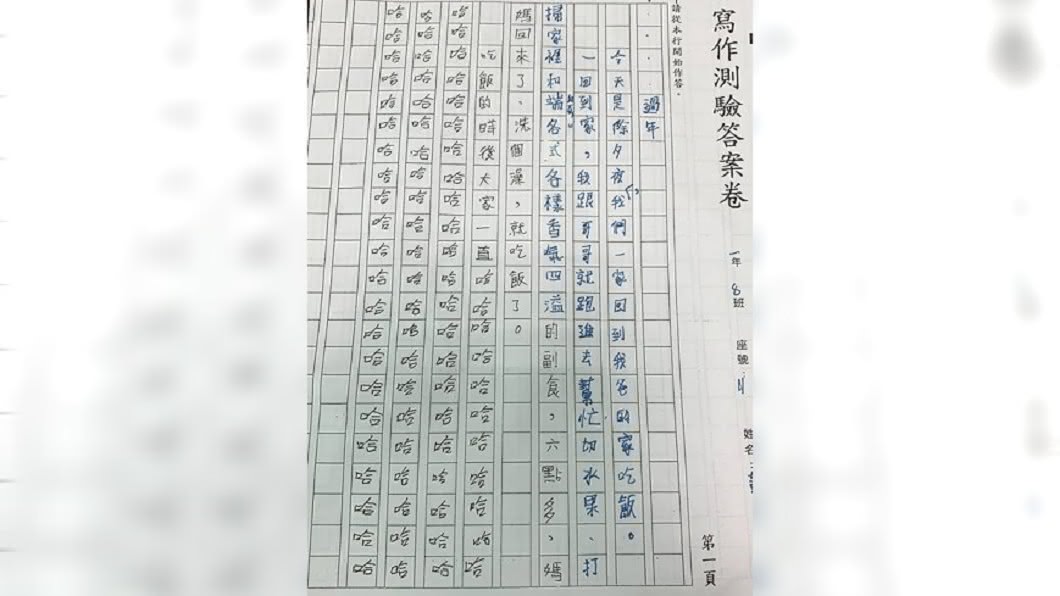 寫作測驗答案卷
一年
8班
座號
姓名:
第一頁
請從本行開始作答。
過年
今天是除夕夜,我們一家回到我爸的家吃飯。
一回到家,我跟哥哥就跑進去幫忙切水果、打
掃家裡和端各式各樣香氣四溢的副食,六點多,媽
媽回來了,洗個澡,就吃飯了。
吃飯的時後大家一直哈哈哈哈哈哈哈哈哈哈哈
哈哈哈哈哈哈哈哈哈哈哈哈哈哈哈哈哈哈哈哈哈哈
哈哈哈哈哈哈哈哈哈哈哈哈哈哈哈哈哈哈哈哈哈哈
哈哈哈哈哈哈哈哈哈哈哈哈哈哈哈哈哈哈哈哈哈哈